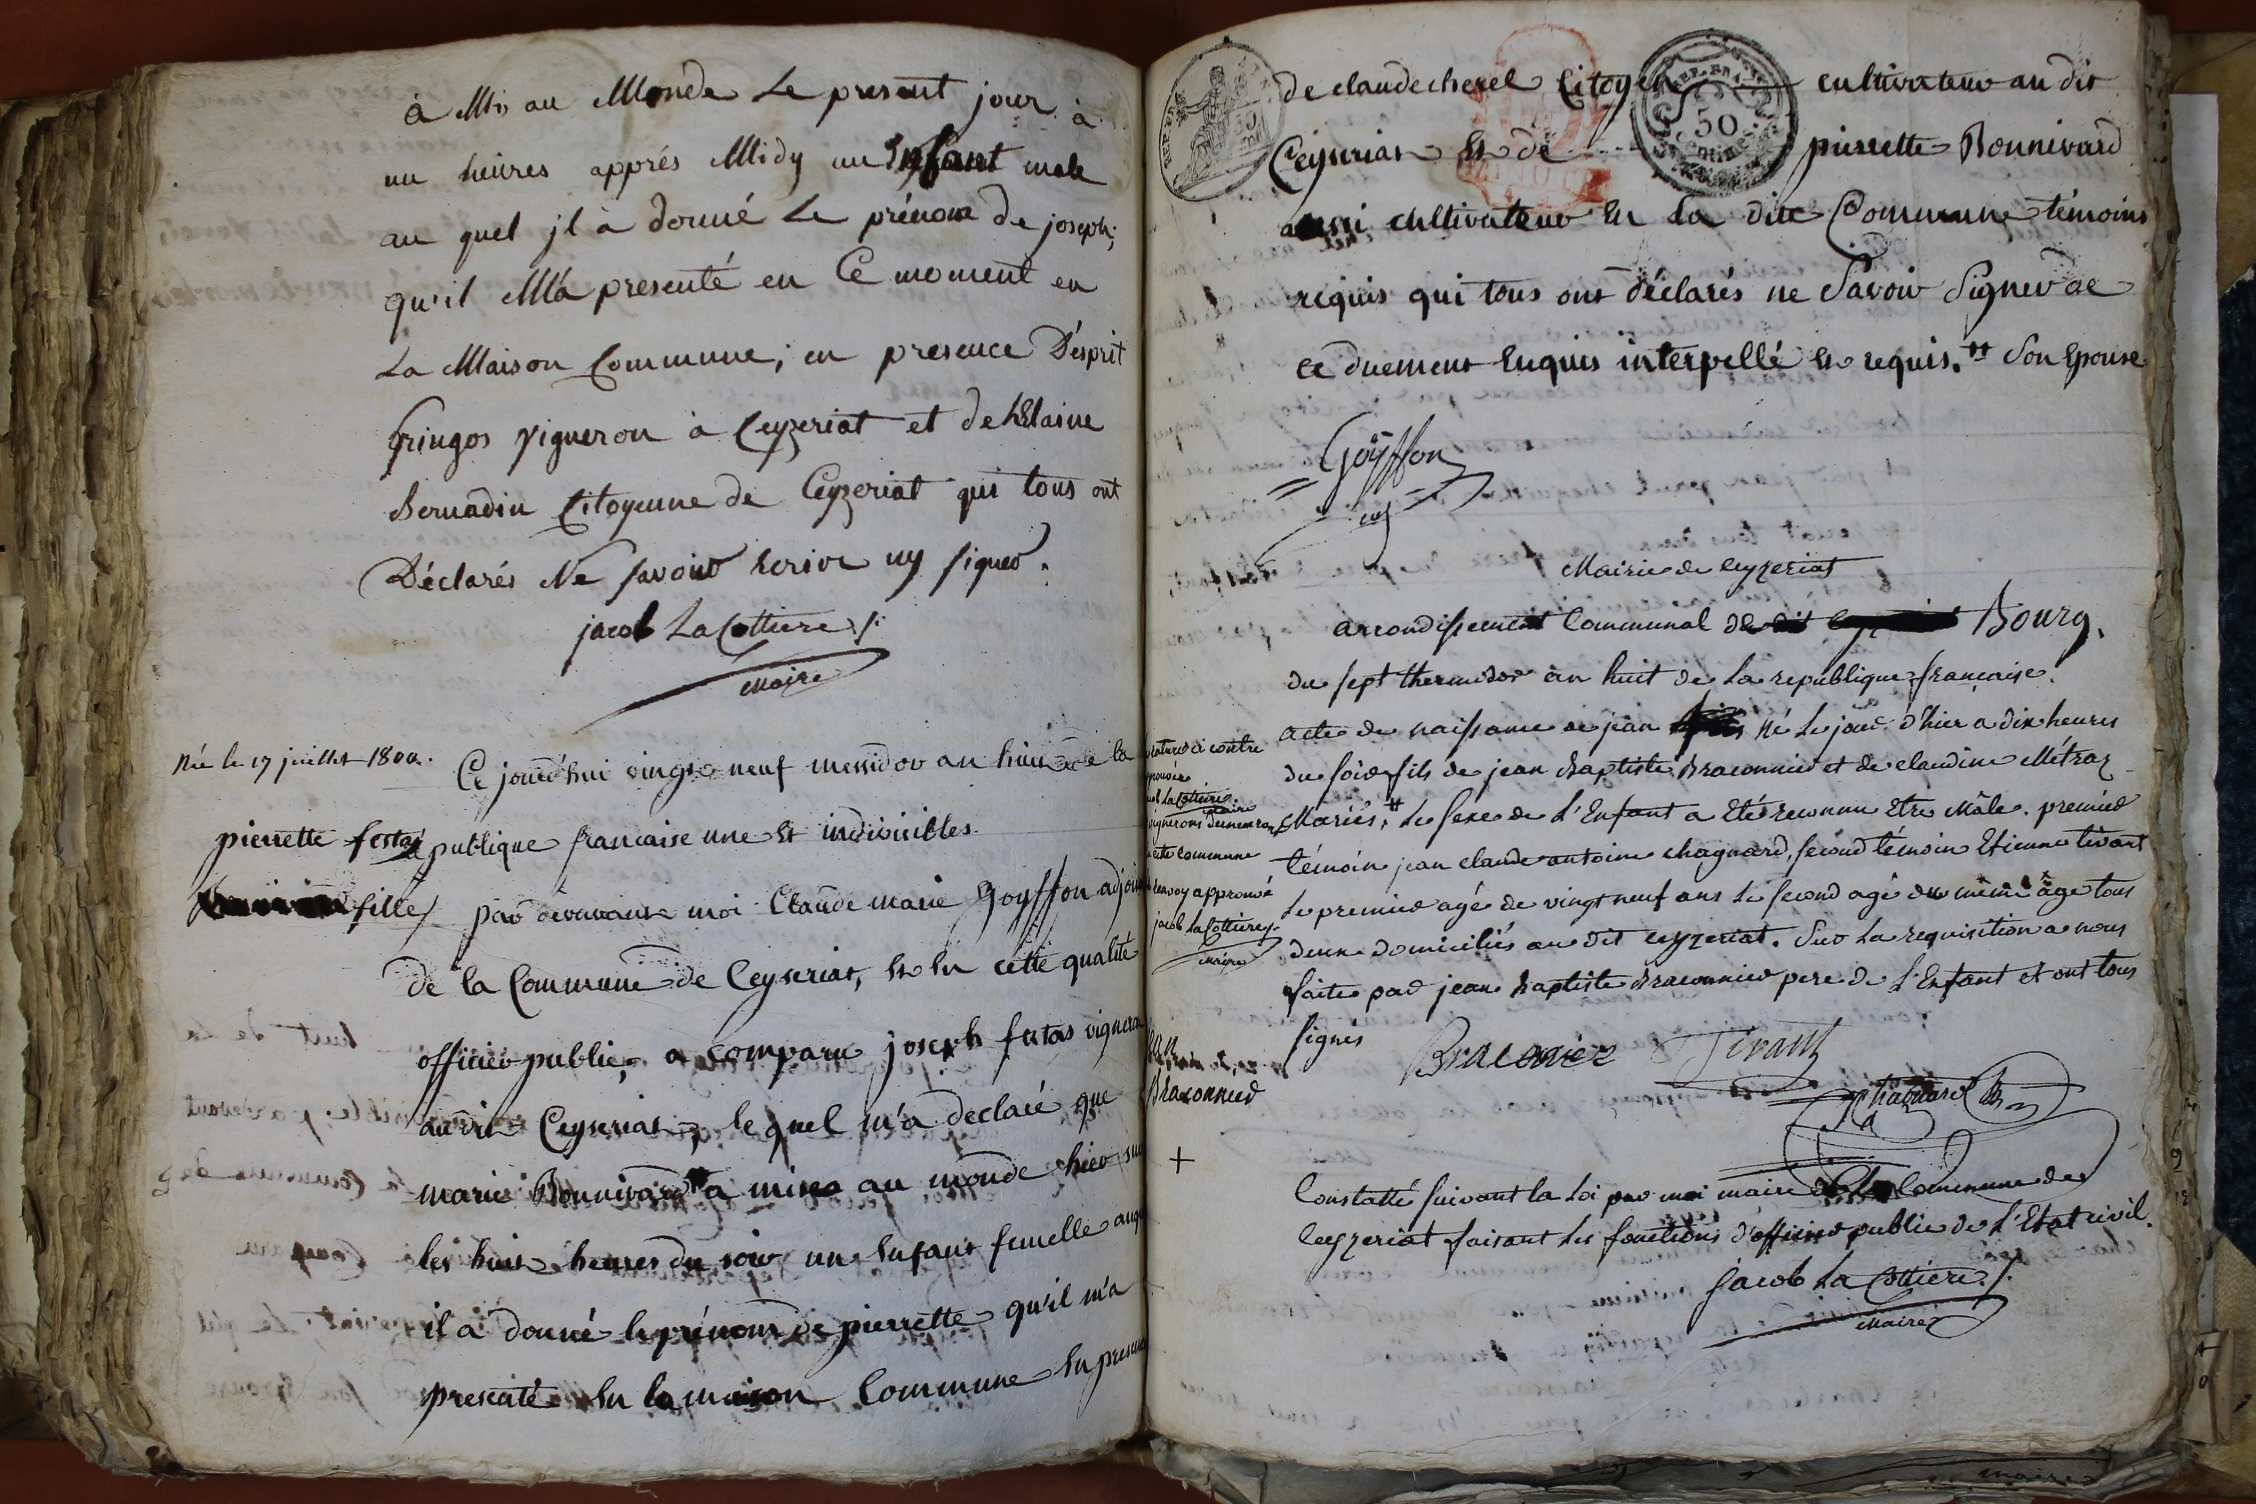 à Mis au Monde Le present jour à
un heures apprés Midy un Enfant male
au quel jl à donné Le prénom de joseph;
qu'il M'a presenté en Ce moment en
La Maison Commune; en presence D'ésprit
fringos vigneron à Ceyzeriat et de hélaine
Bernadin Citoyenne de Ceyzeriat qui tous ont
Déclarés Ne savoir herire ny signer.
jacob LaCottiere
maire
Née le 17 juillet 1800.
pierrette festas
fille
Ce jourd'hui vingt neuf messidor an huit de la
republique francaise une et indivisibles
par devant moi Claude marie Goyffon adjoint
de la Commune de Ceyseriat, et en cette qualité
officier public, a comparu joseph festas vigneron
audit Ceyseriat, le quel m'a declaré que
marie Bonnivard a mise au monde hier sur
les huit heures du soir un enfant femelle auquel
il a donné le prénom de pierrette qu'il m'a
presenté en la maison Commune en presence
REP. FRA.
50
de claude cherel Citoyen cultivateur au dit
Ceyseriat et de pierrette Bonnivard
aussi cultivateur en la dite Commune témoins
requis qui tous ont déclarés ne savoir signer de
ce duement enquis interpellé et requis. Son Epouse
Goÿffon
adj
Mairie de Ceyzeriat
arrondissement Communal de Bourg.
du sept thermidor an huit de la republique française.
acte de naissance de jean né le jour d'hier a dix heures
du soir fils de jean Baptiste Braconnier et de claudine Métraz
Mariés, Le sexe de L'Enfant a eté reconnu Etre Mâle. premier
témoin jean claude antoine chagnard, second témoin Etienne tivant
Le premier agé de vingt neuf ans Le second agé du même âge tous
deux domiciliés au dit ceyzeriat. Sur La requisition a nous
faite par jean Baptiste Braconnier pere de L'Enfant et ont tous
signés
Braconier Tivant
Chagnard
ci contre
LaCottiere
maire
vignerons demeurant
commune
renvoy approuvé
jacob LaCottiere
maire
Braconnier
+
Constatté suivant la Loi par moi maire de la Commune de
Ceyzeriat faisant les fonctions d'officier public de L'Etat civil.
jacob La Cottiere
maire